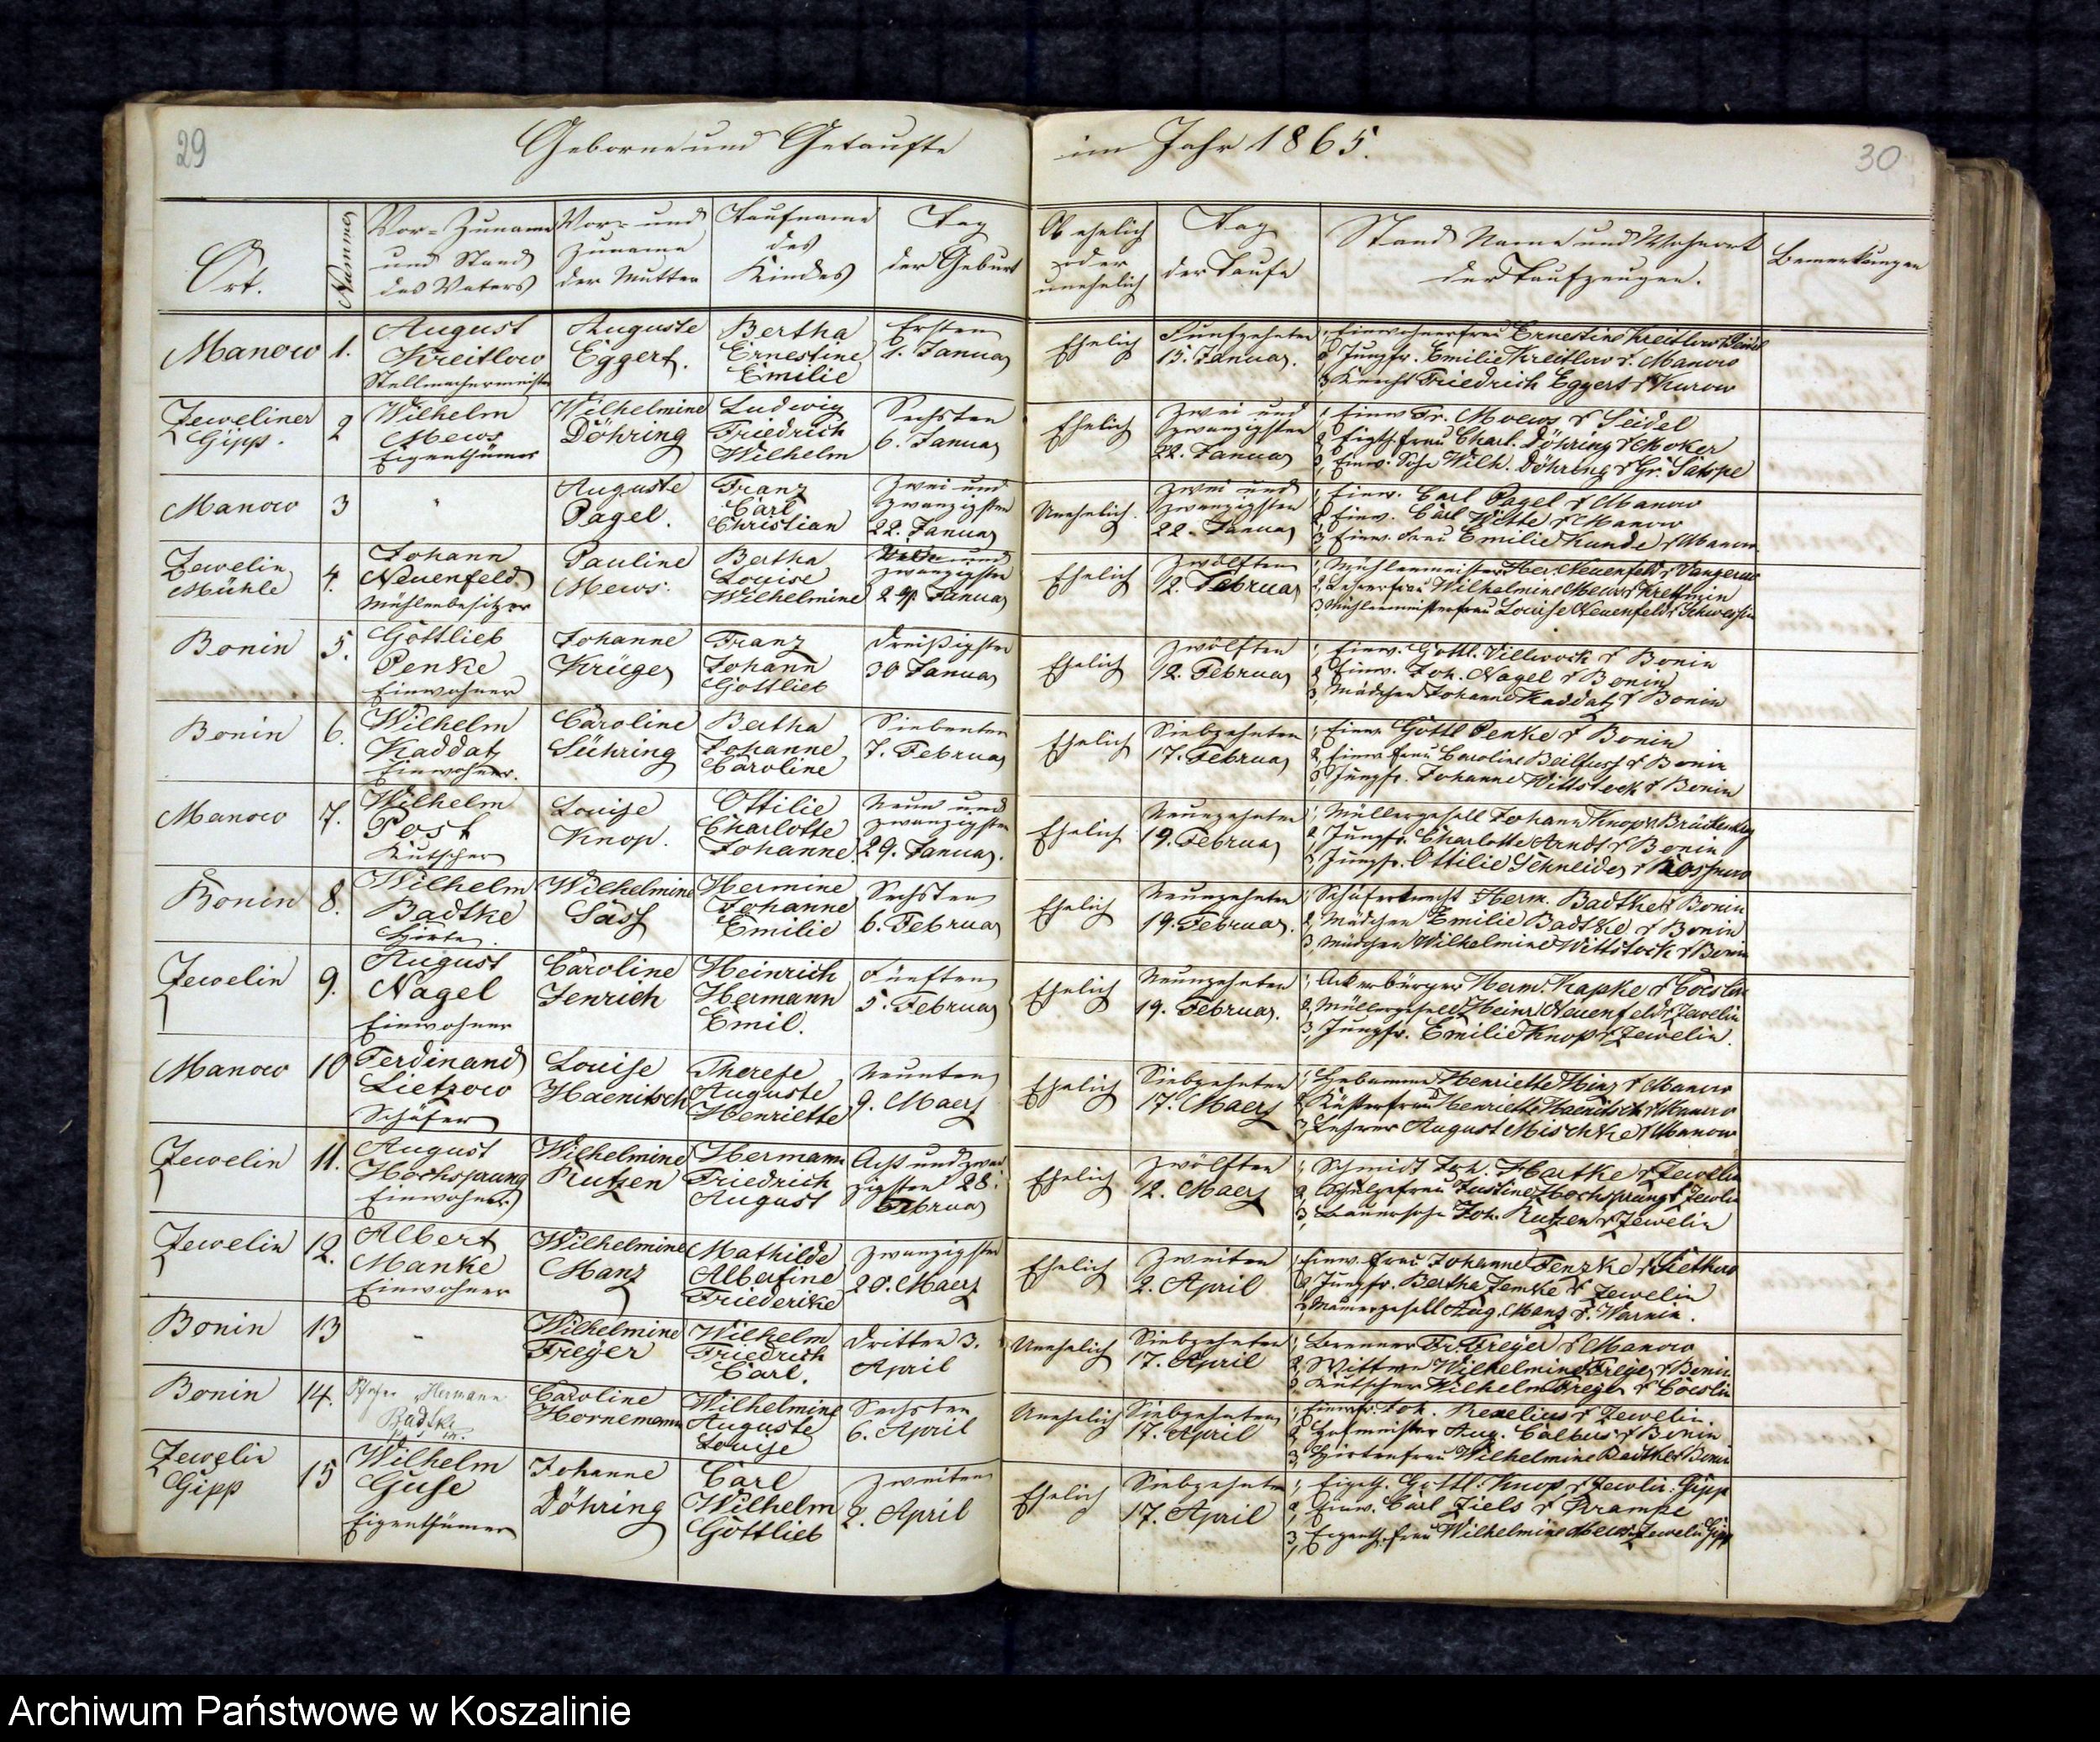 29
Geborne und Getaufte
Ort.
Nummer
Vor- Zuname
und Stand
des Vaters
Vor- und
Zuname
der Mutter
Taufname
des
Kindes
Tag
der Geburt
Manow
1.
August
Kreitlow
Stellmachermeister
Auguste
Eggert.
Bertha
Ernestine
Emilie
Ersten
1. Januar
Jeweliner
Gipp.
2
Wilhelm
Mews
Eigenthümer
Wilhelmine
Döhring
Ludwig
Friedrich
Wilhelm
Sechsten
6. Januar
Manow
3
"
Auguste
Pagel.
Franz
Carl
Christian
Zwei und
zwanzigsten
22. Januar
Jewelin
Mühle
4.
Johann
Neuenfeld
Mühlenbesitzer
Pauline
Mews.
Bertha
Louise
Wilhelmine
und
zwanzigsten
Januar
Bonin
5.
Gottlieb
Penke
Einwohner
Johanne
Krüger
Franz
Johann
Gottlieb
Dreißigsten
30 Januar
Bonin
6.
Wilhelm
Kaddatz
Einwohner.
Caroline
Sühring
Bertha
Johanne
Caroline
Siebenten
7. Februar
Manow
7.
Wilhelm
Post
Kutscher
Louise
Knop.
Ottilie
Charlotte
Johanne
Neun und
zwanzigsten
29. Januar.
Bonin
8.
Wilhelm
Badtke
Hirte.
Wilhelmine
Sass
Hermine
Johanne
Emilie
Sechsten
6. Februar
Jewelin
9.
August
Nagel
Einwohner
Caroline
Jenrich
Heinrich
Hermann
Emil.
Fünften
5. Februar
Manow
10
Ferdinand
Lietzow
Schäfer
Louise
Haenitsch
Therese
Auguste
Henriette
Neunten
9. Maerz
Jewelin
11.
August
Hochsprung
Einwohner
Wilhelmine
Rutzen
Hermann
Friedrich
August
Acht und zwan
zigsten 28.
Februar
Jewelin
12.
Albert
Manke
Einwohner
Wilhelmine
Manz
Mathilde
Albertine
Friederike
Zwanzigsten
20. Maerz
Bonin
13
"
Wilhelmine
Freyer
Wilhelm
Friedrich
Carl.
Dritten 3.
April
Bonin
14.
Hermann
Badtke
Caroline
Hornemann
Wilhelmine
Auguste
Louise
Sechsten
6. April
Jewelin
Gipp
15
Wilhelm
Guse
Eigenthümer
Johanne
Döhring
Carl
Wilhelm
Gottlieb
Zweiten
2. April
im Jahr 1865.
30
Ob ehelich
oder
unehelich
Tag
der Taufe
Stand Name und Wohnort
der Taufzeugen.
Bemerkungen
Ehelich
Funfzehnten
15. Januar.
1, Einwohnerfrau Ernestine Kreitlow
2, Jungfr. Emilie Kreitlow v. Manow
3 Knecht Friedrich Eggert v Kurow
Ehelich
Zwei und
zwanzigsten
22. Januar
1, Einw Fr. Moews v Seidel
2, Eigth. frau Charl. Döhring v Moker
3, Einw. Sohn Wilh. Döhring v Gr. Satspe
Unehelich.
Zwei und
zwanzigsten
22. Januar
1, Einw. Carl Pagel v Manow
2, Einw. Carl Witte v Manow
3, Einw. frau Emilie Kunde v Manow
Ehelich
Zwölften
12. Februar
1, Mühlenmeister Her. Neuenfeld v Vangerow
2, Lehrerfrau Wilhelmine Mews v Krettmin
3, Mühlenmeisterfrau Louise Neuenfeld v Schwessin
Ehelich
Zwölften
12. Februar
1, Einw. Gottl. Villwock v Bonin
2, Einw. Joh. Nagel v Bonin
3, Mädchen Johanne Kaddatz v Bonin
Ehelich
Siebzehnten
17. Februar
1, Einw. Gottl Penke v Bonin
2, Einw frau Caroline Beilfuss v Bonin
3, Jungfr. Johanne Wittstock v Bonin
Ehelich
Neunzehnten
19. Februar
1, Müllergesell Johann Knop v Brückenkrug
2, Jungfr. Charlotte Arndt v Bonin
3, Jungfr. Ottilie Schneider v
Ehelich
Neunzehnten
19. Februar.
1, Schäferknecht Herm. Badtke v Bonin
2, Mädchen Emilie Badtke v Bonin
3, Mädchen Wilhelmine Wittstock v Bonin
Ehelich
Neunzehnten
19. Februar.
1, Ackerbürger Herm. Kapke v Coeslin
2, Müllergesell Heinr. Neuenfeld v Jewelin
3, Jungfr. Emilie Knop v Jewelin.
Ehelich
Siebzehnten
17. Maerz
1, Hebamme Henriette Hinz v Manow
2, Küsterfrau Henriette Haenitsch v Manow
3, Lehrer August Mischke v Manow
Ehelich
Zwölften
12. Maerz
1, Schmidt Joh. Hartke v Jewelin
2, Schulzefrau Justine Hochsprung v Jewelin
3, Bauersohn Joh. Rutzen v Jewelin
Ehelich
Zweiten
2. April
1, Einw. frau Johanne Tenzke v Viethow
2, Jungfr. Bertha Jemke v Jewelin
3, Maurergesell Aug. Manz v. Warnin.
Unehelich
Siebzehnten
17. April
1, Brenner Fr. Freyer v Manow
2, Wittwe Wilhelmine Freyer v Bonin
3 Kutscher Wilhelm Freyer v Coeslin
Unehelich
Siebzehnten
17. April
1, Joh. v Jewelin.
2, Hofmeister Aug. Calbus v Bonin
3, Hirtenfrau Wilhelmine Badtke v Bonin
Ehelich
Siebzehnten
17. April
1, Eigth. Gottl: Knop v Jewelin: Gipp
2, Einw. Carl Ziels v Krampe
3, Eigenth. frau Wilhelmine Mews Jewelin Gipp
Archiwum Państwowe w Koszalinie